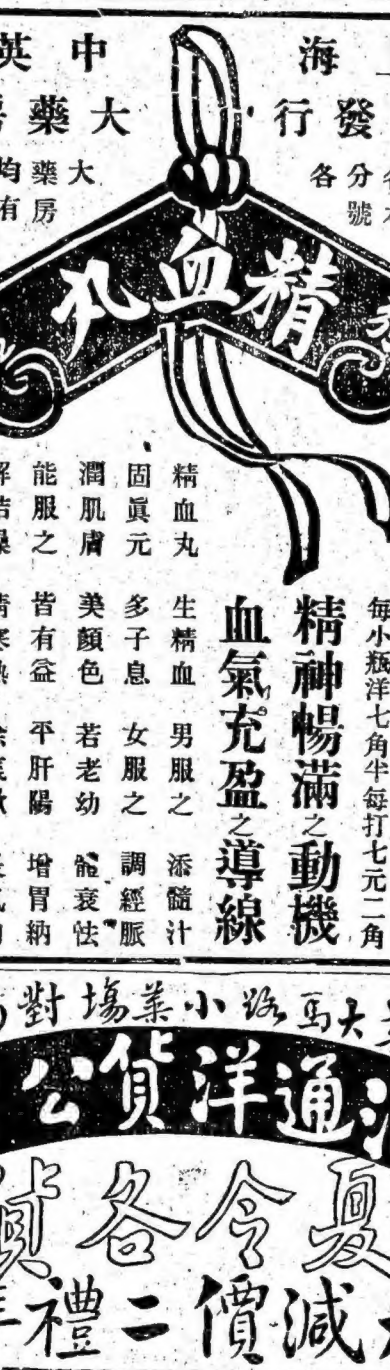 海 中英
發行 大藥
各 分號 大藥房 均有
精血丸
每小瓶洋七角半每打七元二角
精神暢滿之動機
血氣充盈之導線
精血丸 生精血 男服之 添髓汁
固眞元 多子息 女服之 調經脈
潤肌膚 美顏色 若老幼 能衰怯
能服之 皆有益 平肝陽 增胃納
大馬路小菜塲對
通洋貨公
夏令各貨
減價二禮